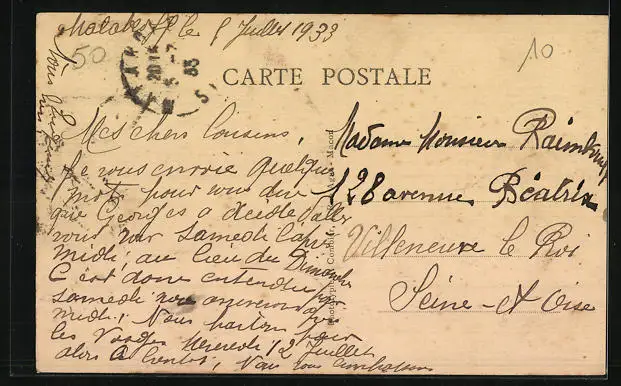 Malakoff le 5 Juillet 1933
50
10
CARTE POSTALE
Mes chers Cousins,
Je vous envoie quelques
mots pour vous dire
que Georges a decidé d'aller
vous voir Samedi
midi, au lieu du Dimanche
C'est donc entendu pour
samedi nous arriverons
midi, Nous partons pour
les Vosges Mercredi 12 Juillet
alors à bientôt, Nous vous embrassons
Madame Monsieur
128 avenue Béatrix
Villeneuve le Roi
Seine-et Oise